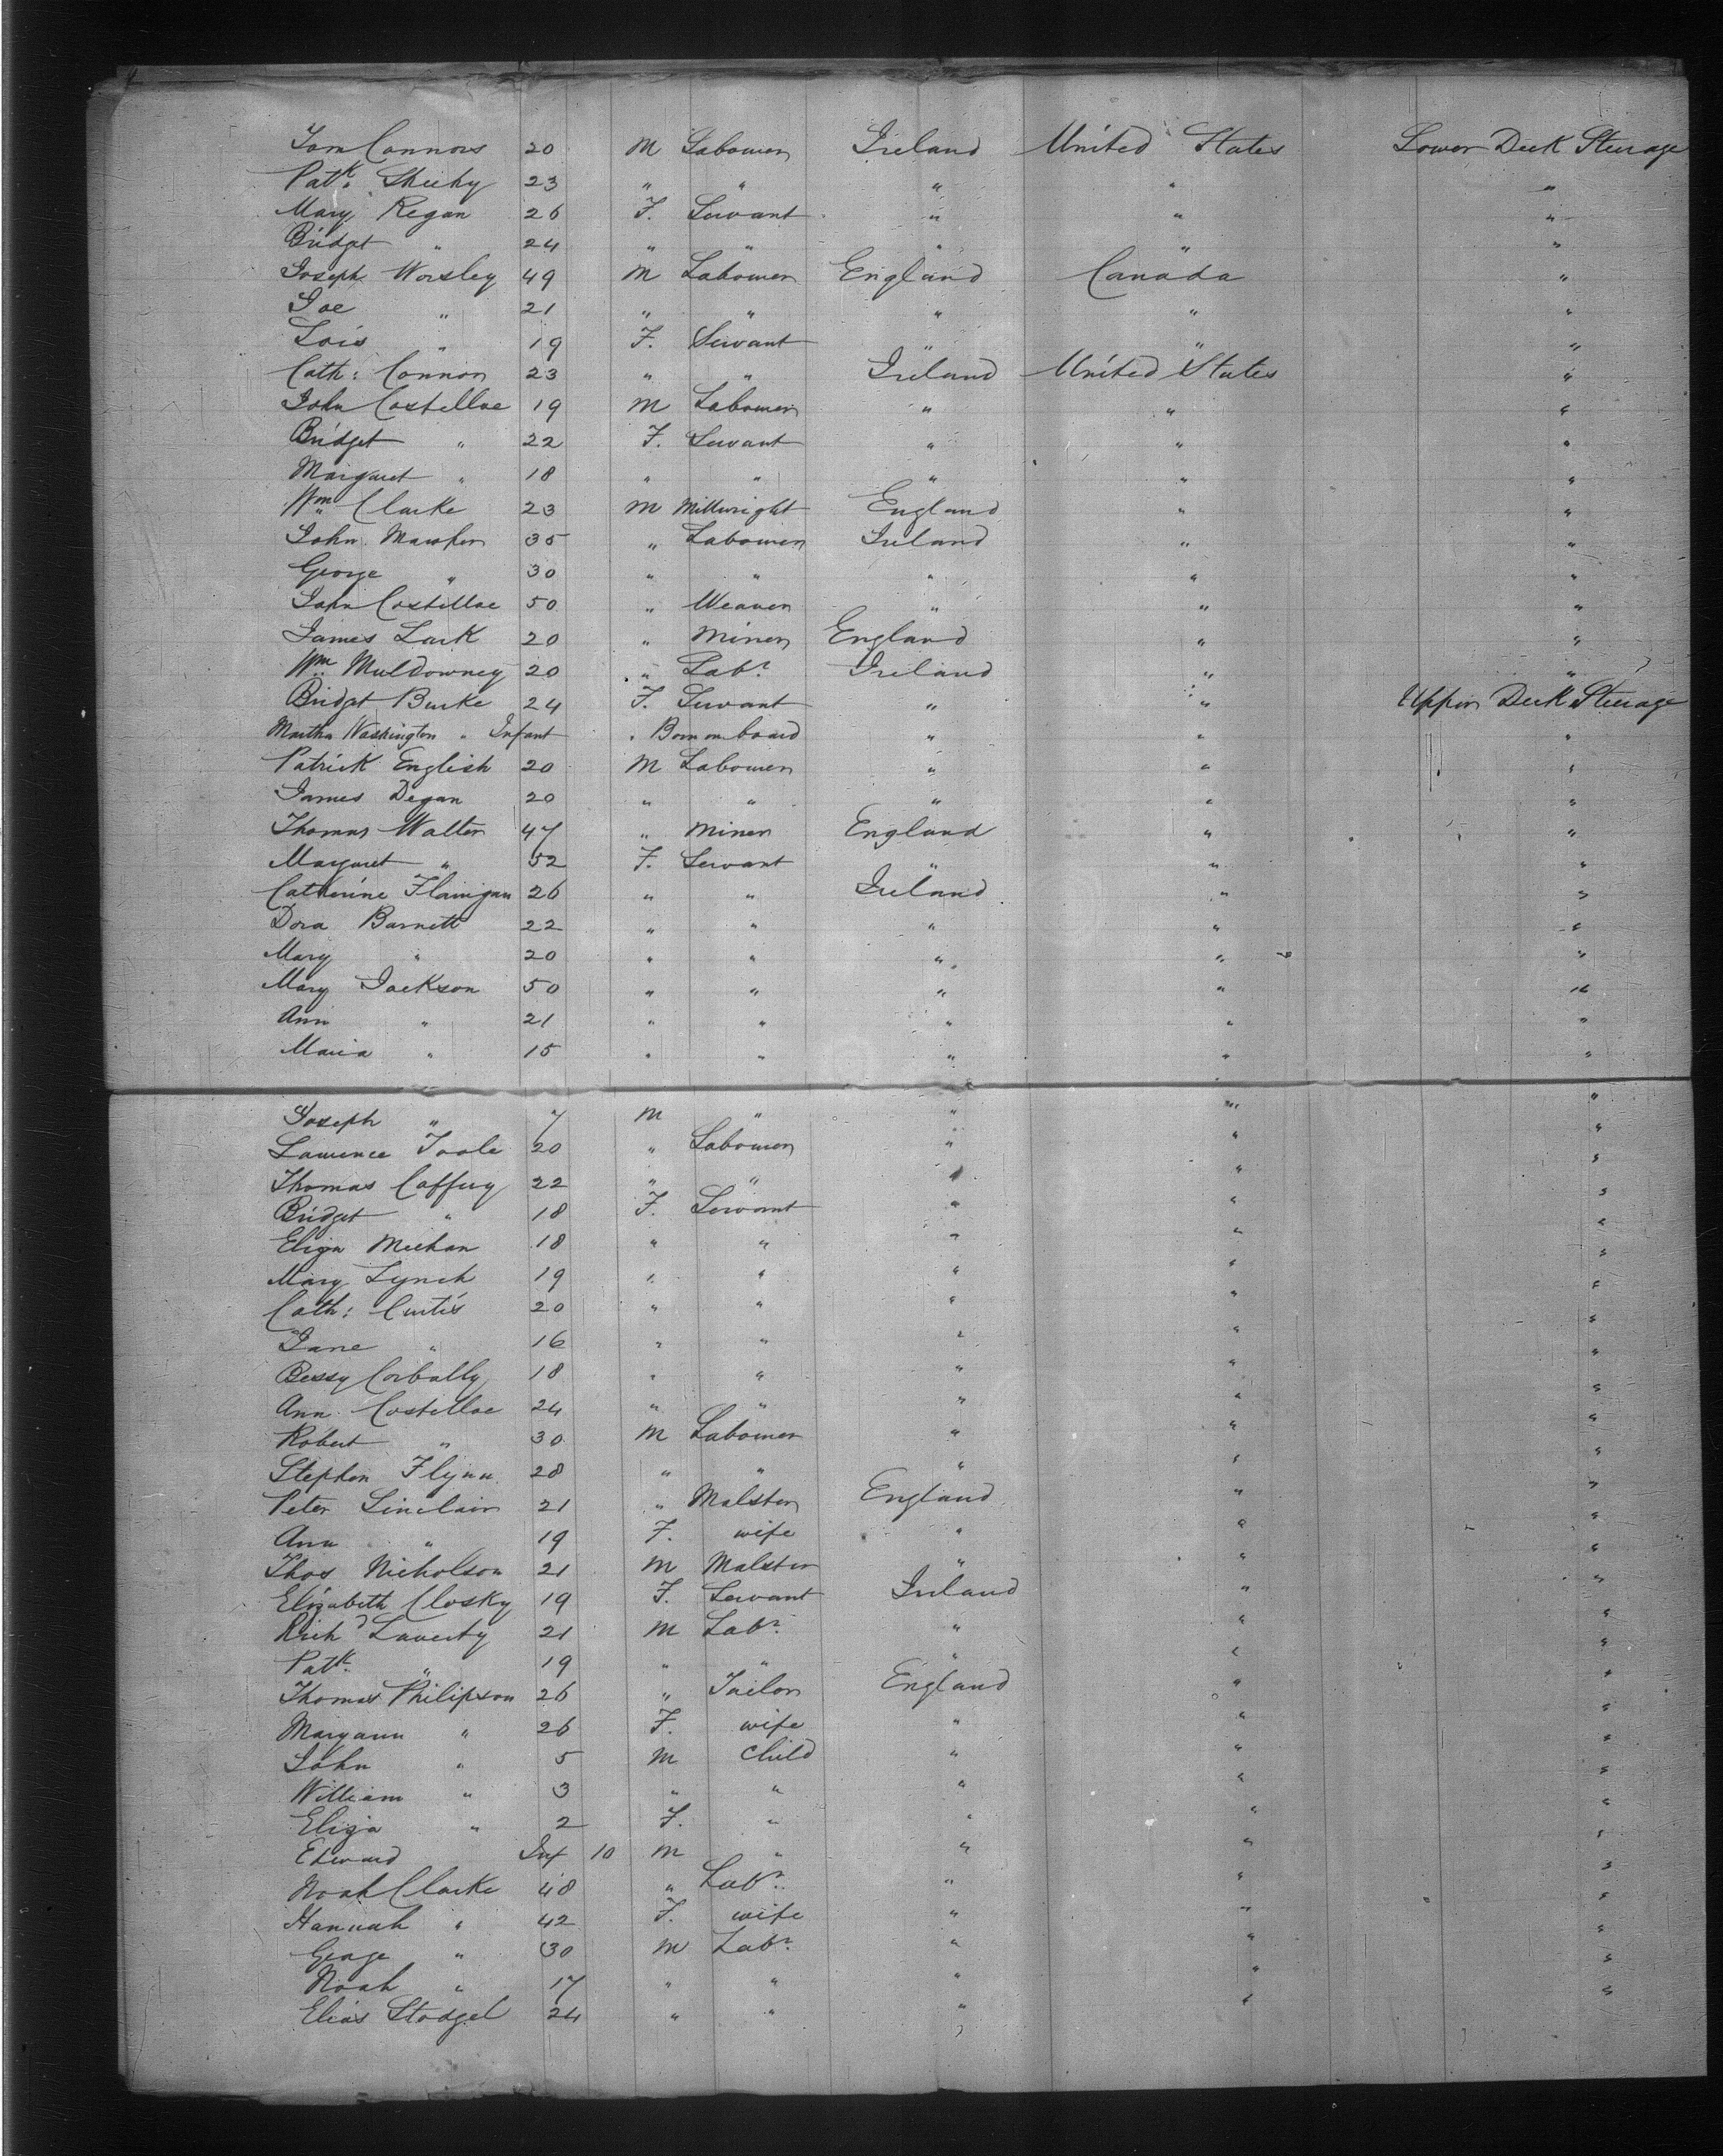 Tom Connors 20 M Labourer Ireland United States Lower Deck Steerage
Patk. Sheehy 23 " " " " "
Mary Regan 26 F. Servant " " "
Bridget " 24 " " " " "
Joseph Worsley 49 M Labourer England Canada "
Joe " 21 " " " " "
Lois " 19 F. Servant " " "
Cath: Connor 23 " " Ireland United States "
John Costelloe 19 M Labourer " " "
Bridget " 22 F. Servant " " "
Margaret " 18 " " " " "
Wm. Clarke 23 M Millwright England " "
John 35 " Labourer Ireland " "
George " 30 " " " " "
John Costelloe 50 " Weaver " " "
James Lark 20 " Miner England " "
Wm. Muldowney 20 " Labr. Ireland " "
Bridget Burke 24 F. Servant " " Upper Deck Steerage
Martha Washington " Infant " Born on board " " "
Patrick English 20 M Labourer " " "
James Degan 20 " " " " "
Thomas Walter 47 " Miner England " "
Margaret " 52 F. Servant " " "
Catherine Flanigan 26 " " Ireland " "
Dora Barnett 22 " " " " "
Mary " 20 " " " " "
Mary Jackson 50 " " " " "
Ann " 21 " " " " "
Maria " 15 " " " " "
Joseph " 7 M " " " "
Lawrence Toole 20 " Labourer " " "
Thomas Caffery 22 " " " " "
Bridget " 18 F. Servant " " "
Eliza Meehan 18 " " " " "
Mary Lynch 19 " " " " "
Cath: Curtis 20 " " " " "
Jane " 16 " " " " "
Bessy Corbally 18 " " " " "
Ann Costelloe 24 " " " " "
Robert " 30 M Labourer " " "
Stephen Flynn 28 " " " " "
Peter Sinclair 21 " Malster England " "
Ann " 19 F. wife " " "
Thos Nicholson 21 M Malster " " "
Elizabeth Closky 19 F. Servant Ireland " "
Richd Laverty 21 M Labr. " " "
Patk. " 19 " " " " "
Thomas Philipson 26 " Tailor England " "
Maryann " 26 F. wife " " "
John " 5 M child " " "
William " 3 " " " " "
Eliza " 2 F. " " " "
Edward Inf 10 M " " " "
Noah Clarke 48 " Labr. " " "
Hannah " 42 F. wife " " "
George " 30 M Labr. " " "
Noah " 17 " " " " "
Elias Stodgel 24 " " " " "